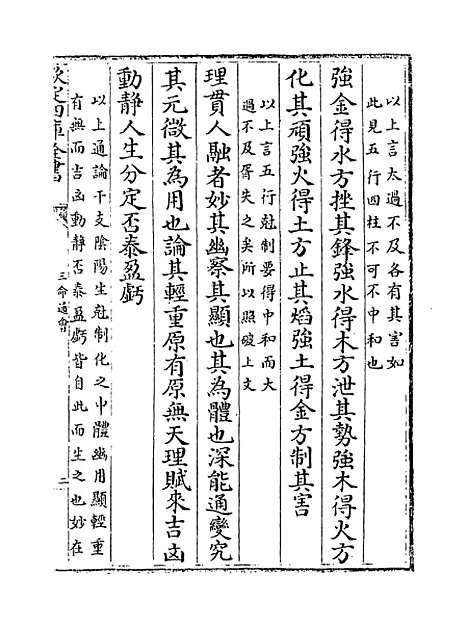 以上言太過不及各有其害如
此見五行四柱不可不中和也
強金得水方挫其鋒強水得木方泄其勢強木得火方
化其頑強火得土方止其焰強土得金方制其害
以上言五行尅制要得中和而大
過不及得失之矣所以照破上文
理貫人融者妙其幽察其顯也其為體也深能通變究
其元微其為用也論其輕重原有原無天理賦來吉凶
動靜人生分定否泰盈虧
以上通論干支陰陽生尅制化之中體幽用顯輕重
有無而吉凶動靜否泰盈虧皆自此而生之也妙在
欽定四庫全書
三命通會
二